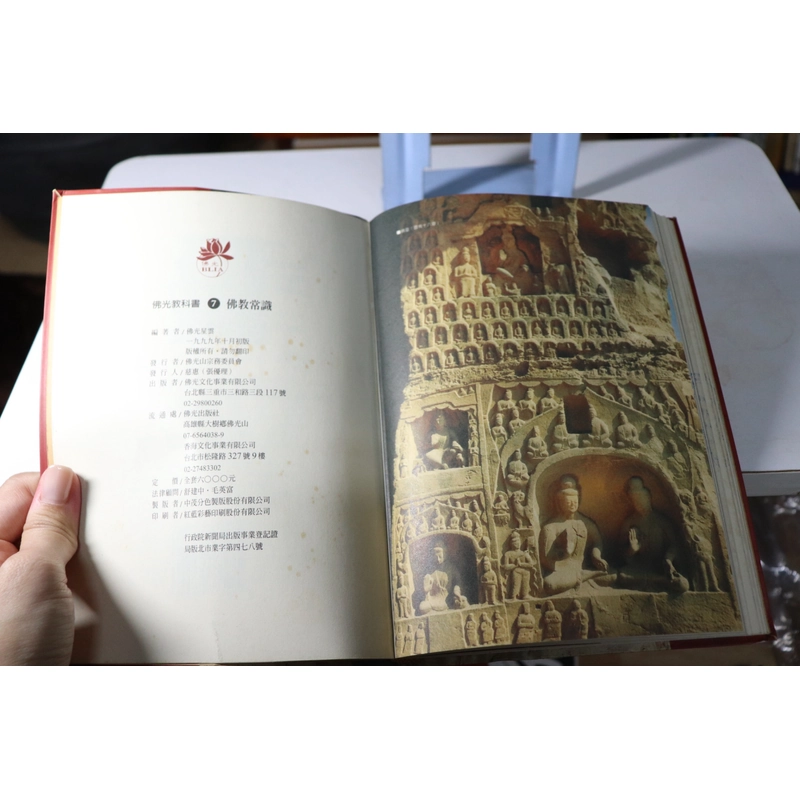 佛光
BLIA
佛光教科書 7 佛教常識
編著者/佛光星雲
一九九九年十月初版
版權所有,請勿翻印
發行者/佛光山宗務委員會
發行人/慈惠(張優理)
出版者/佛光文化事業有限公司
台北縣三重市三和路三段117號
02-29800260
流通處/佛光出版社
高雄縣大樹鄉佛光山
07-6564038-9
香海文化事業有限公司
台北市松隆路327號9樓
02-27483302
定價/全套六〇〇〇元
法律顧問/舒建中・毛英富
製版者/中茂分色製版股份有限公司
印刷者/紅藍彩藝印刷股份有限公司
行政院新聞局出版事業登記證
局版北市業字第四七八號